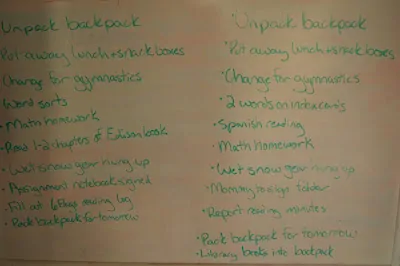 Unpack backpack
Put away lunch + snack boxes
Change for gymnastics
Word sorts
• Math homework
• Read 1-2 chapters of Edison book
• Wet snow gear hung up
• Assignment notebook signed
• Fill out 6 Flags reading log
• Pack backpack for tomorrow
Unpack backpack
• Put away lunch + snack boxes
• Change for gymnastics
• 2 words on index cards
• Spanish reading
• Math Homework
• Wet snow gear hung up
• Mommy to sign folder
• Report reading minutes
• Pack backpack for tomorrow!
• Library books into backpack